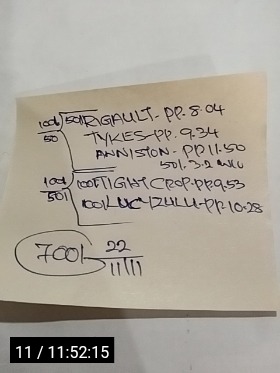 100/ 50/ RIGAULT - PP. 8.04
50 TYKES - PP. 9.34
ANNISTON - PP 11.50
50/. 3.2
100/ 100/ TIGHT CROP - PP. 9.53
50/ 100/ LUCY ZULU - PP. 10.28
700/ 22
11 / 11:52:15